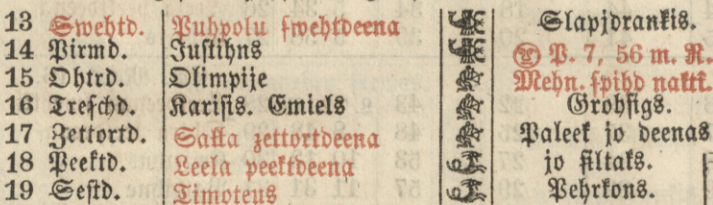 13 Swehtd. Puhpolu swehtdeena Slapjdrankis.
14 Pirmd. Justihns P. 7, 56 m. R.
15 Ohtrd. Olimpije Mehn. spihd naktī.
16 Treschd. Karisis. Emiels Grohsigs.
17 Zettortd. Sakka zettortdeena Paleek jo deenas
18 Peektd. Leela peektdeena jo siltaks.
19 Sestd. Timoteus Pehrkons.